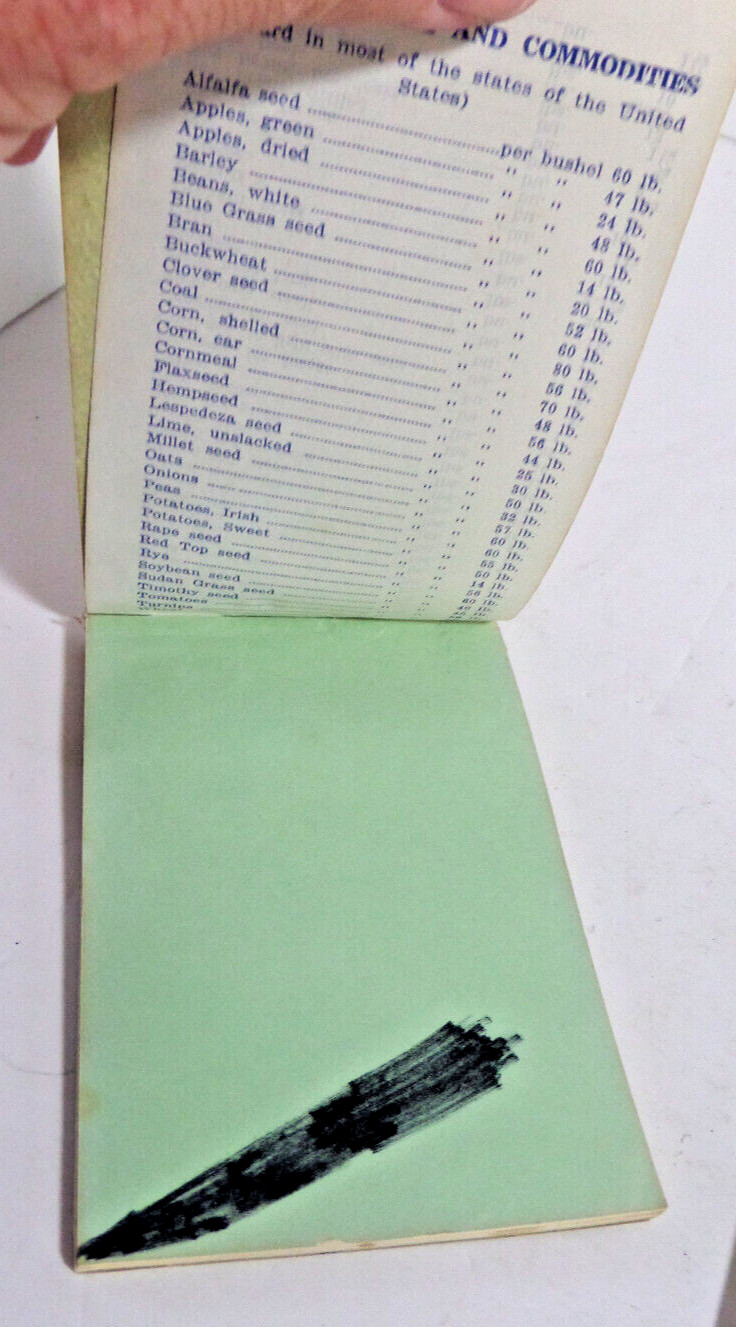 AND COMMODITIES
ard in most of the states of the United
States)
Alfalfa seed ........ per bushel 60 lb.
Apples, green ........ " " 47 lb.
Apples, dried ........ " " 24 lb.
Barley ........ " " 48 lb.
Beans, white ........ " " 60 lb.
Blue Grass seed ........ " " 14 lb.
Bran ........ " " 20 lb.
Buckwheat ........ " " 52 lb.
Clover seed ........ " " 60 lb.
Coal ........ " " 80 lb.
Corn, shelled ........ " " 56 lb.
Corn, ear ........ " " 70 lb.
Cornmeal ........ " " 48 lb.
Flaxseed ........ " " 56 lb.
Hempseed ........ " " 44 lb.
Lespedeza seed ........ " " 25 lb.
Lime, unslacked ........ " " 30 lb.
Millet seed ........ " " 50 lb.
Oats ........ " " 32 lb.
Onions ........ " " 57 lb.
Peas ........ " " 60 lb.
Potatoes, Irish ........ " " 60 lb.
Potatoes, Sweet ........ " " 55 lb.
Rape seed ........ " " 50 lb.
Red Top seed ........ " " 14 lb.
Rye ........ " " 56 lb.
Soybean seed ........ " " 60 lb.
Sudan Grass seed ........ " " 40 lb.
Timothy seed ........ " " 45 lb.
Tomatoes
Turnips